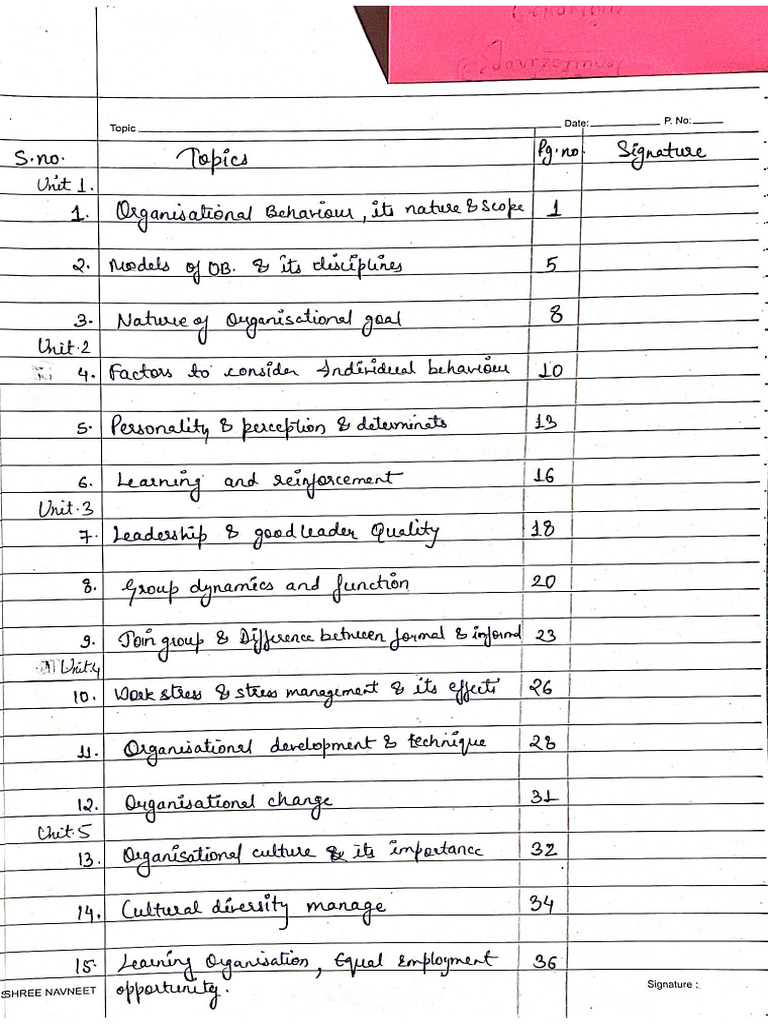 Topic Date: P. No:
S.no. Topics Pg.no Signature
Unit 1.
1. Organisational Behaviour, its nature & scope 1
2. Models of OB. & its disciplines 5
3. Nature of Organisational goal 8
Unit.2
4. Factors to consider Individual behaviour 10
5. Personality & perception & determinats 13
6. Learning and reinforcement 16
Unit.3
7. Leadership & good leader Quality 18
8. Group dynamics and function 20
9. Join group & Difference between formal & informal 23
Unit4
10. Work stress & stress management & its effects 26
11. Organisational development & technique 28
12. Organisational change 31
Unit.5
13. Organisational culture & its importance 32
14. Cultural diversity manage 34
15. Learning Organisation, Equal Employment 36
opportunity.
SHREE NAVNEET Signature :